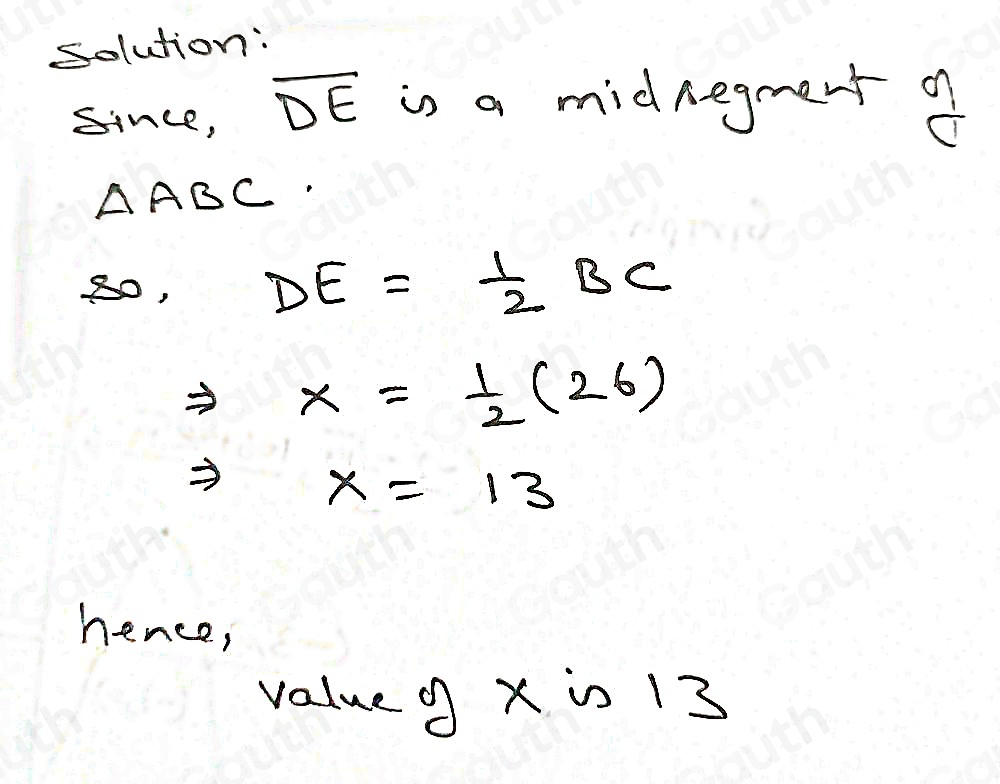 Solution:
Since, D̅E̅ is a midsegment of
△ABC.
so, DE = 1/2 BC
⇒ x = 1/2 (26)
⇒ x = 13
hence,
value of x is 13